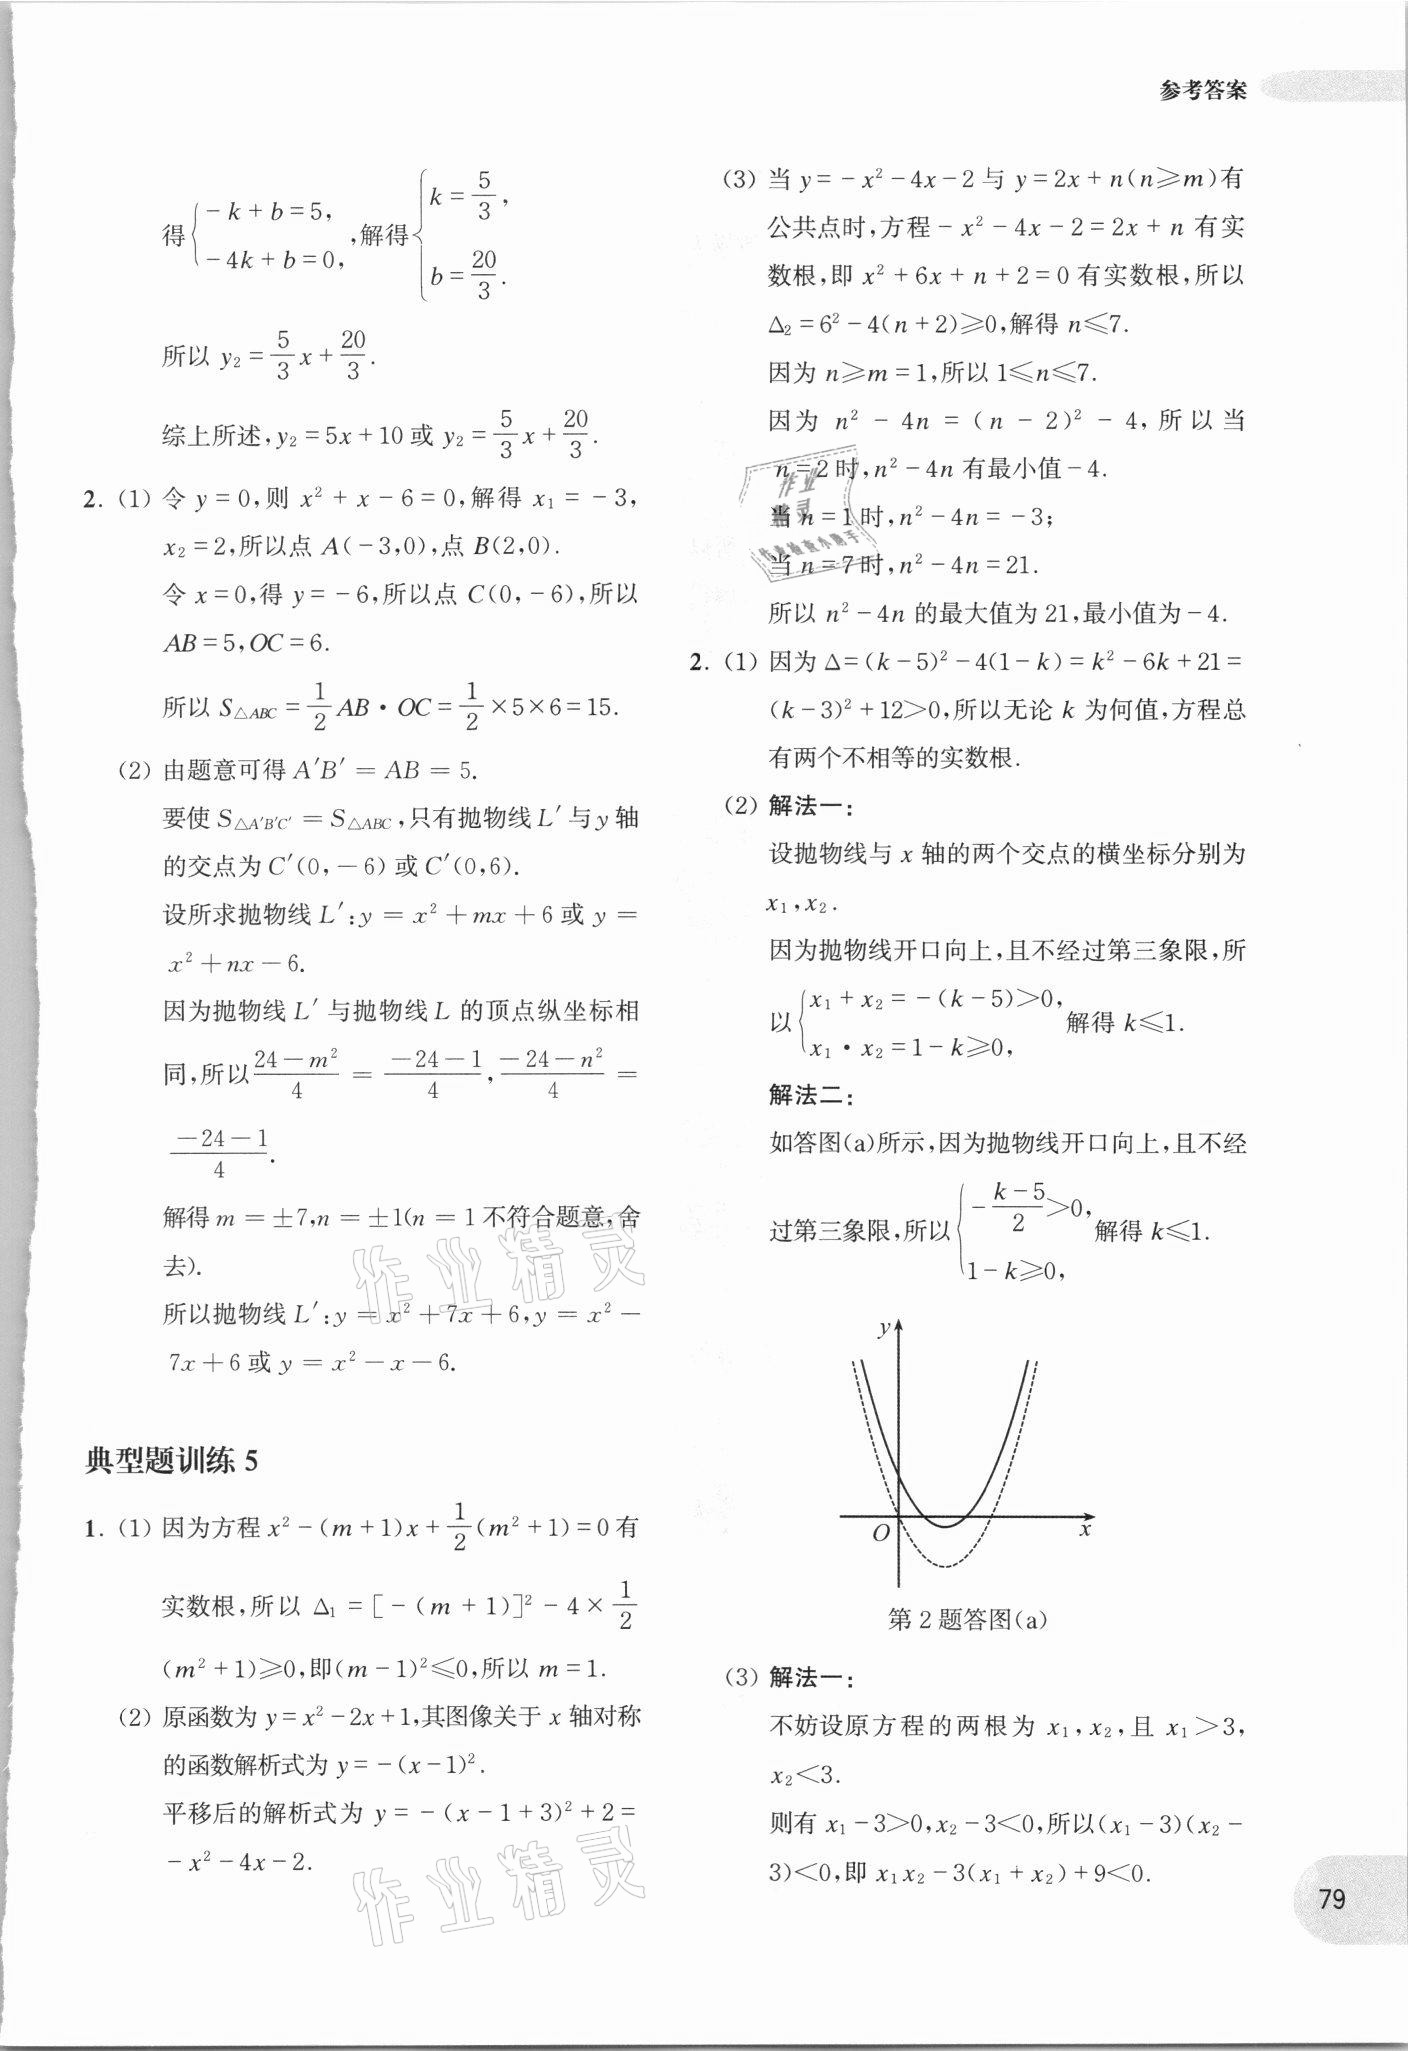 参考答案
得{-k+b=5, -4k+b=0, ,解得{k=5/3, b=20/3.
所以 y₂=5/3x+20/3.
综上所述,y₂=5x+10 或 y₂=5/3x+20/3.
2. (1) 令 y=0,则 x²+x-6=0,解得 x₁=-3,
x₂=2,所以点 A(-3,0),点 B(2,0).
令 x=0,得 y=-6,所以点 C(0,-6),所以
AB=5,OC=6.
所以 S△ABC=1/2AB·OC=1/2×5×6=15.
(2) 由题意可得 A′B′=AB=5.
要使 S△A′B′C′=S△ABC,只有抛物线 L′与 y 轴
的交点为 C′(0,-6) 或 C′(0,6).
设所求抛物线 L′:y=x²+mx+6 或 y=
x²+nx-6.
因为抛物线 L′与抛物线 L 的顶点纵坐标相
同,所以 (24-m²)/4=(-24-1)/4,(-24-n²)/4=
(-24-1)/4.
解得 m=±7,n=±1(n=1 不符合题意,舍
去).
所以抛物线 L′:y=x²+7x+6,y=x²-
7x+6 或 y=x²-x-6.
典型题训练 5
1. (1) 因为方程 x²-(m+1)x+1/2(m²+1)=0 有
实数根,所以 Δ₁=[-(m+1)]²-4×1/2
(m²+1)≥0,即(m-1)²≤0,所以 m=1.
(2) 原函数为 y=x²-2x+1,其图像关于 x 轴对称
的函数解析式为 y=-(x-1)².
平移后的解析式为 y=-(x-1+3)²+2=
-x²-4x-2.
(3) 当 y=-x²-4x-2 与 y=2x+n(n≥m)有
公共点时,方程-x²-4x-2=2x+n 有实
数根,即 x²+6x+n+2=0 有实数根,所以
Δ₂=6²-4(n+2)≥0,解得 n≤7.
因为 n≥m=1,所以 1≤n≤7.
因为 n²-4n=(n-2)²-4,所以当
n=2 时,n²-4n 有最小值-4.
当 n=1 时,n²-4n=-3;
当 n=7 时,n²-4n=21.
所以 n²-4n 的最大值为 21,最小值为-4.
2. (1) 因为 Δ=(k-5)²-4(1-k)=k²-6k+21=
(k-3)²+12>0,所以无论 k 为何值,方程总
有两个不相等的实数根.
(2) 解法一:
设抛物线与 x 轴的两个交点的横坐标分别为
x₁,x₂.
因为抛物线开口向上,且不经过第三象限,所
以{x₁+x₂=-(k-5)>0, x₁·x₂=1-k≥0, 解得 k≤1.
解法二:
如答图(a)所示,因为抛物线开口向上,且不经
过第三象限,所以{-(k-5)/2>0, 1-k≥0, 解得 k≤1.
y
O
x
第 2 题答图(a)
(3) 解法一:
不妨设原方程的两根为 x₁,x₂,且 x₁>3,
x₂<3.
则有 x₁-3>0,x₂-3<0,所以(x₁-3)(x₂-
3)<0,即 x₁x₂-3(x₁+x₂)+9<0.
79
作业精灵
作业精灵
作业
精灵
作业检查小助手